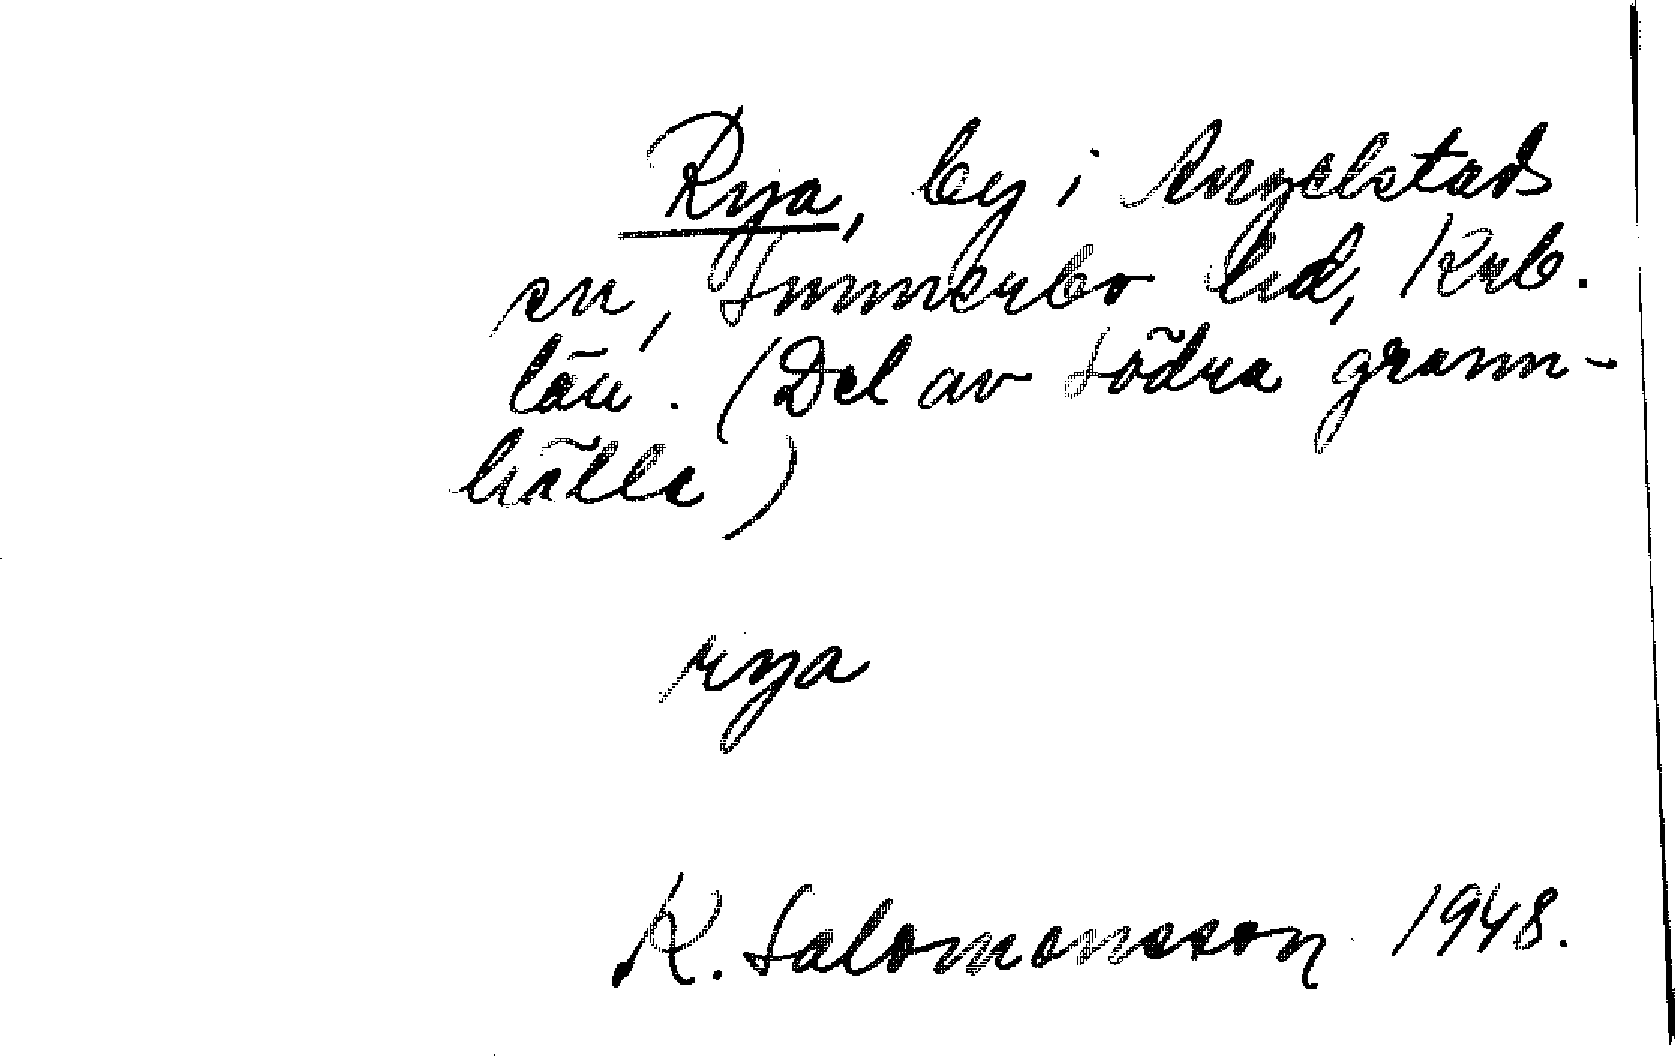 Rya, by i Angelstads
sn, Sunnerbo hd, Krb.
län. (Del av Södra grann-
hälle)
rya
K. Salomonsson 1948.